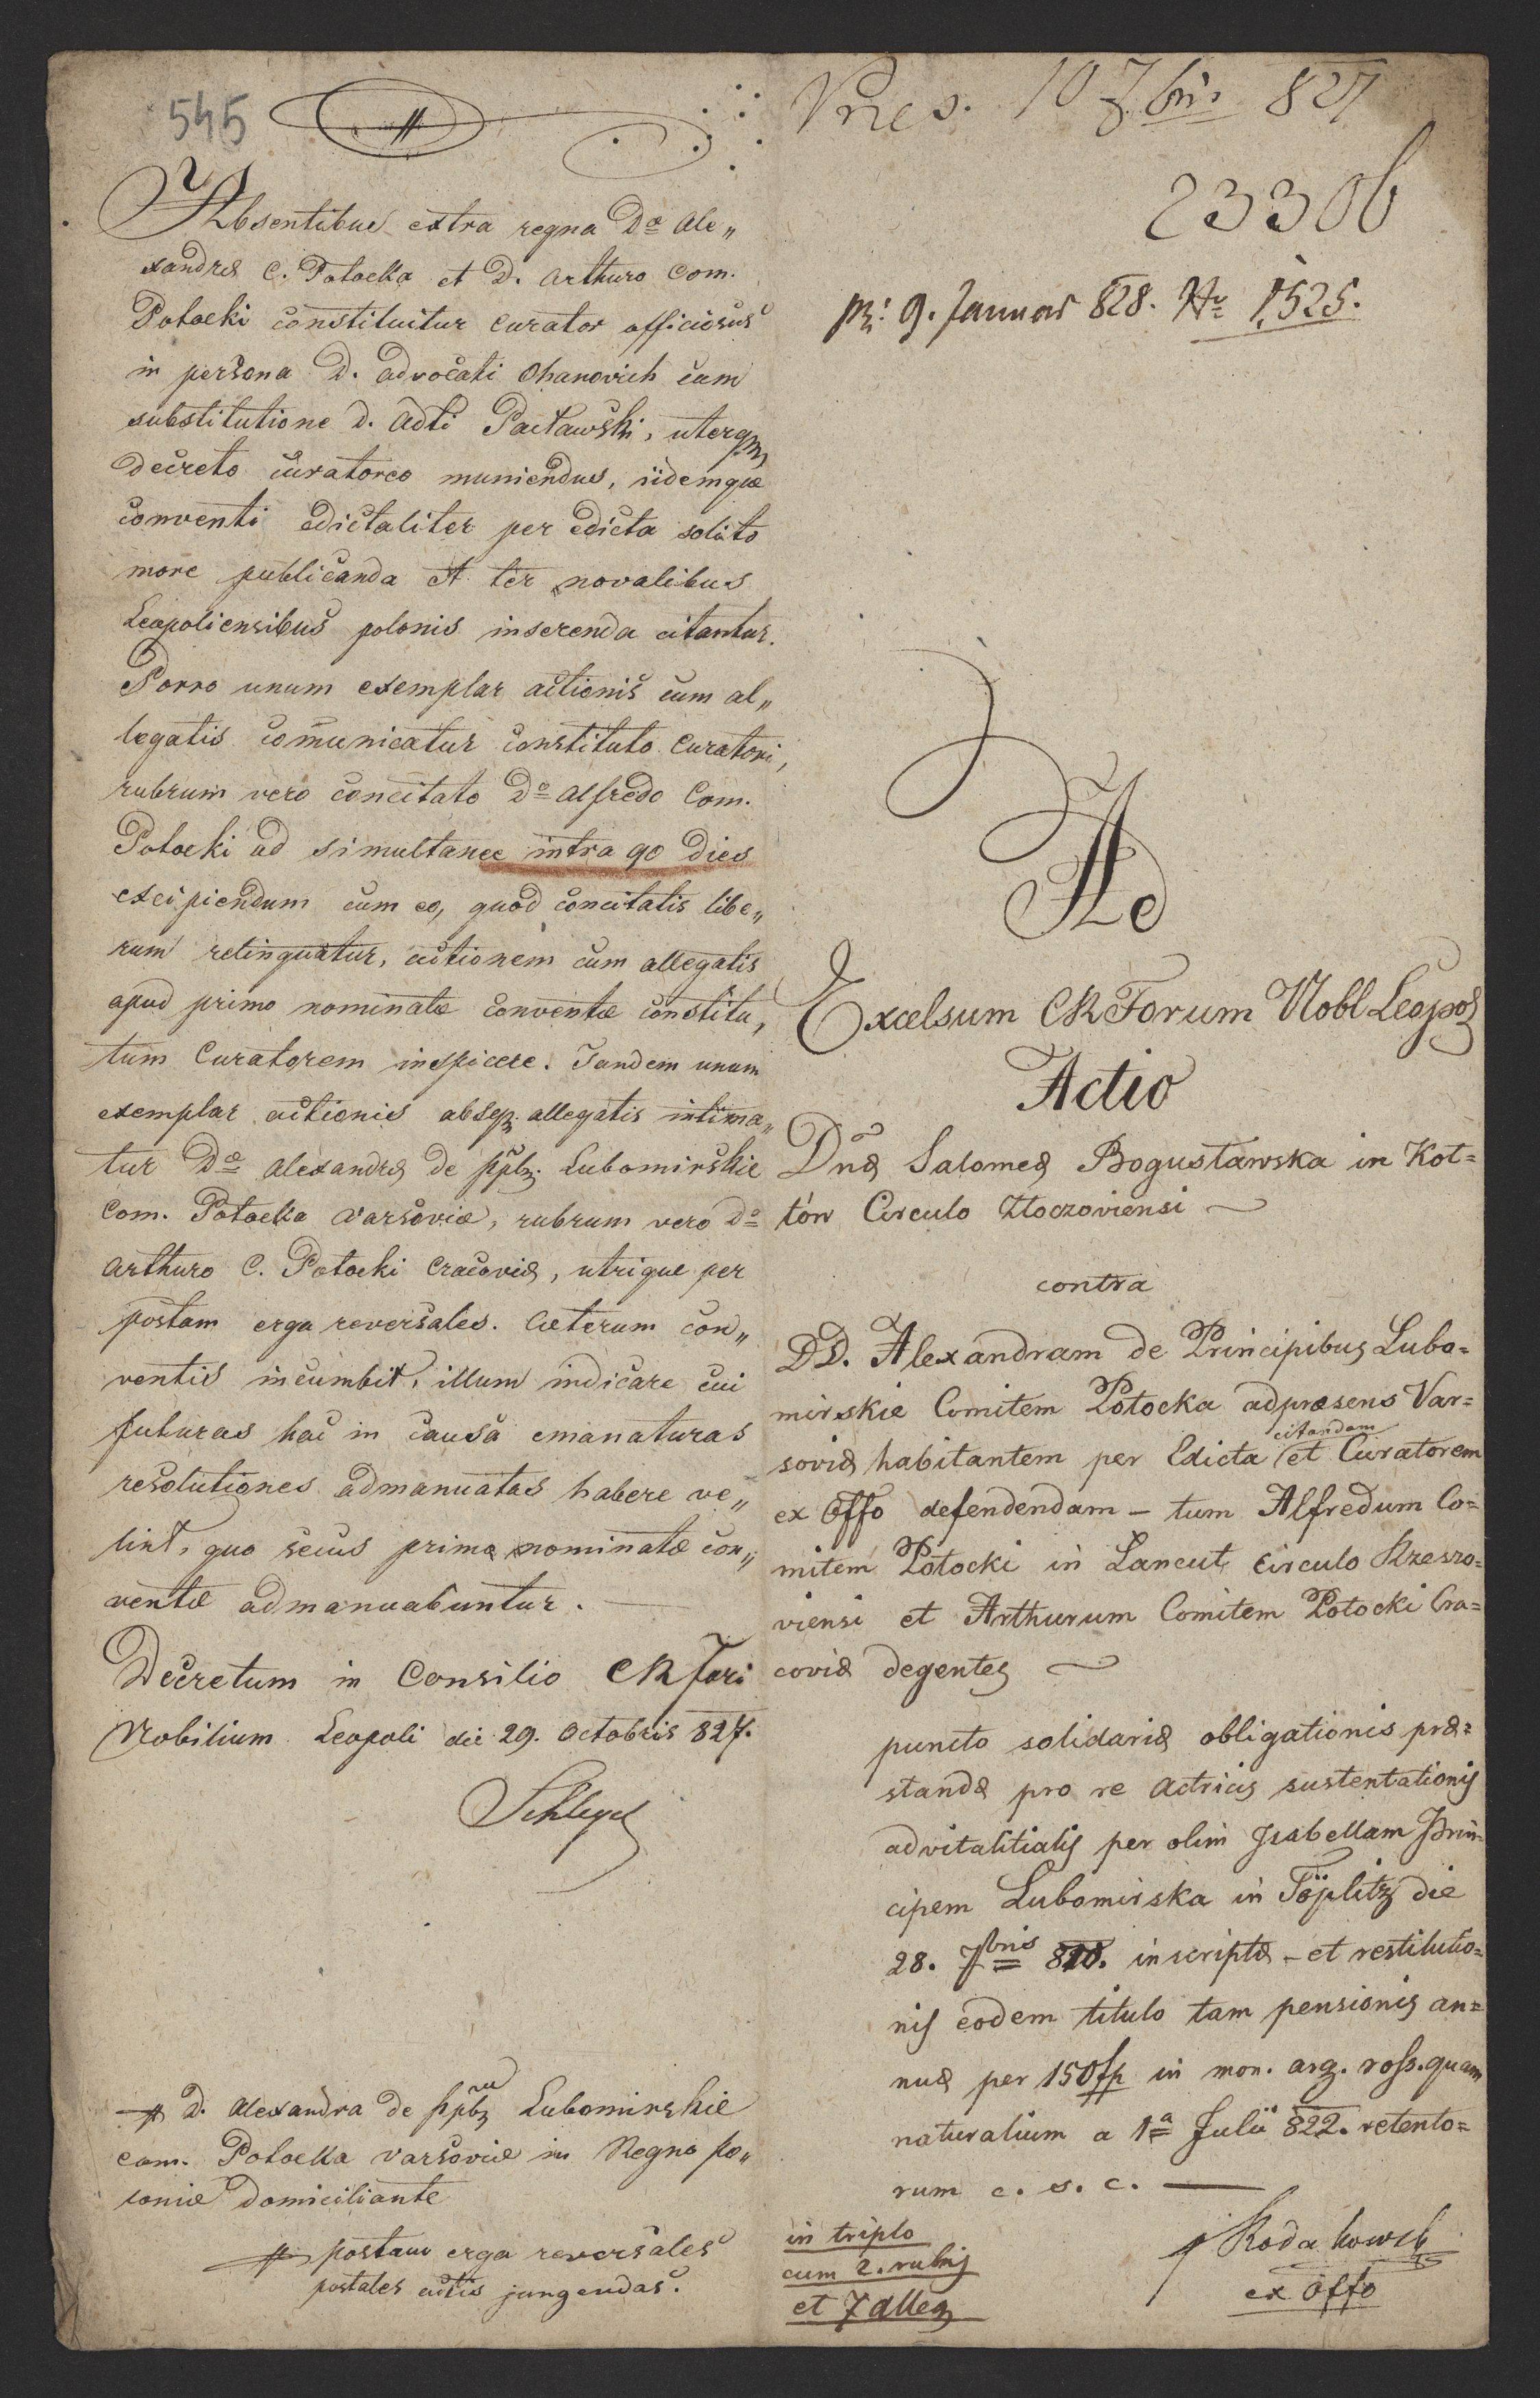 545
Absentibus extra regna Dæ Ale„
xandræ C. Potocka et D. Arthuro Com.
Potocki constituitur curator officiosus
in persona D. advocati Ohanovich cum
substitutione D. Adti Pacławski, uterq
decreto curatoreo muniendus, iidemque
conventi edictaliter per edicta solito
more publicanda et ter novalibus
Leopoliensibus polonis inserenda citantur.
Porro unum exemplar actionis cum al„
legatis com̄unicatur constituto Curatori,
rubrum vero concitato Do Alfredo Com.
Potocki ad simultanee intra 90 dies
excipiendum cum eo, quod concitatis libe„
rum relinquatur, actionem cum allegatis
apud primo nominatæ conventæ constitu„
tum Curatorem inspicere. Tandem unum
exemplar actionis absq allegatis intima„
tur Dæ Alexandræ de Ppbz Lubomirskie
Com. Potocka Varsoviæ, rubrum vero Do
Arthuro C. Potocki Cracoviæ, utrique per
postam erga reversales. Cæterum con„
ventis incumbit, illum indicare cui
futuras hac in causa emanaturas
resolutiones admanuatas habere ve„
lint, quo secus primæ nominatæ con„
ventæ admanuabuntur. —
Decretum in Consilio CR Fori
Nobilium Leopoli die 29. Octobris 827.
Schlegel
D. Alexandra de Ppbz Lubomirskie
com. Potocka Varsoviæ in Regno Po„
loniæ domiciliante
postam erga reversales
postales actis jungendas.
Præs. 10 7bris 827
23306
pr: 9. Januar 828. No 1,525.
Ad
Excelsum CR Forum Nobl Leopol
Actio
Dnæ Salomeæ Bogusławska in Kot=
łów Circulo Złoczoviensi
contra
DD. Alexandram de Principibus Lubo=
mirskie Comitem Potocka ad præsens Var=
soviæ habitantem per Edicta citandam et Curatorem
ex offo defendendam – tum Alfredum Co=
mitem Potocki in Lancut circulo Rzeszo=
viensi et Arthurum Comitem Potocki Cra=
coviæ degentes
puncto solidariæ obligationis præ=
standæ pro re Actricis sustentationis
advitalitialis per olim Isabellam Prin=
cipem Lubomirska in Töplitz die
28. 7bris 810. inscriptæ – et restitutio=
nis eodem titulo tam pensionis an=
nuæ per 150 fp in mon. arg. ross. quam
naturalium a 1a Julii 822. retento=
rum c. s. c. —
in triplo
cum 2. rubris
et 7 alleg
ex offo